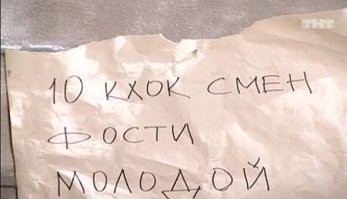 ТНТ
10 КХОК СМЕН
ФОСТИ
МОЛОДОЙ